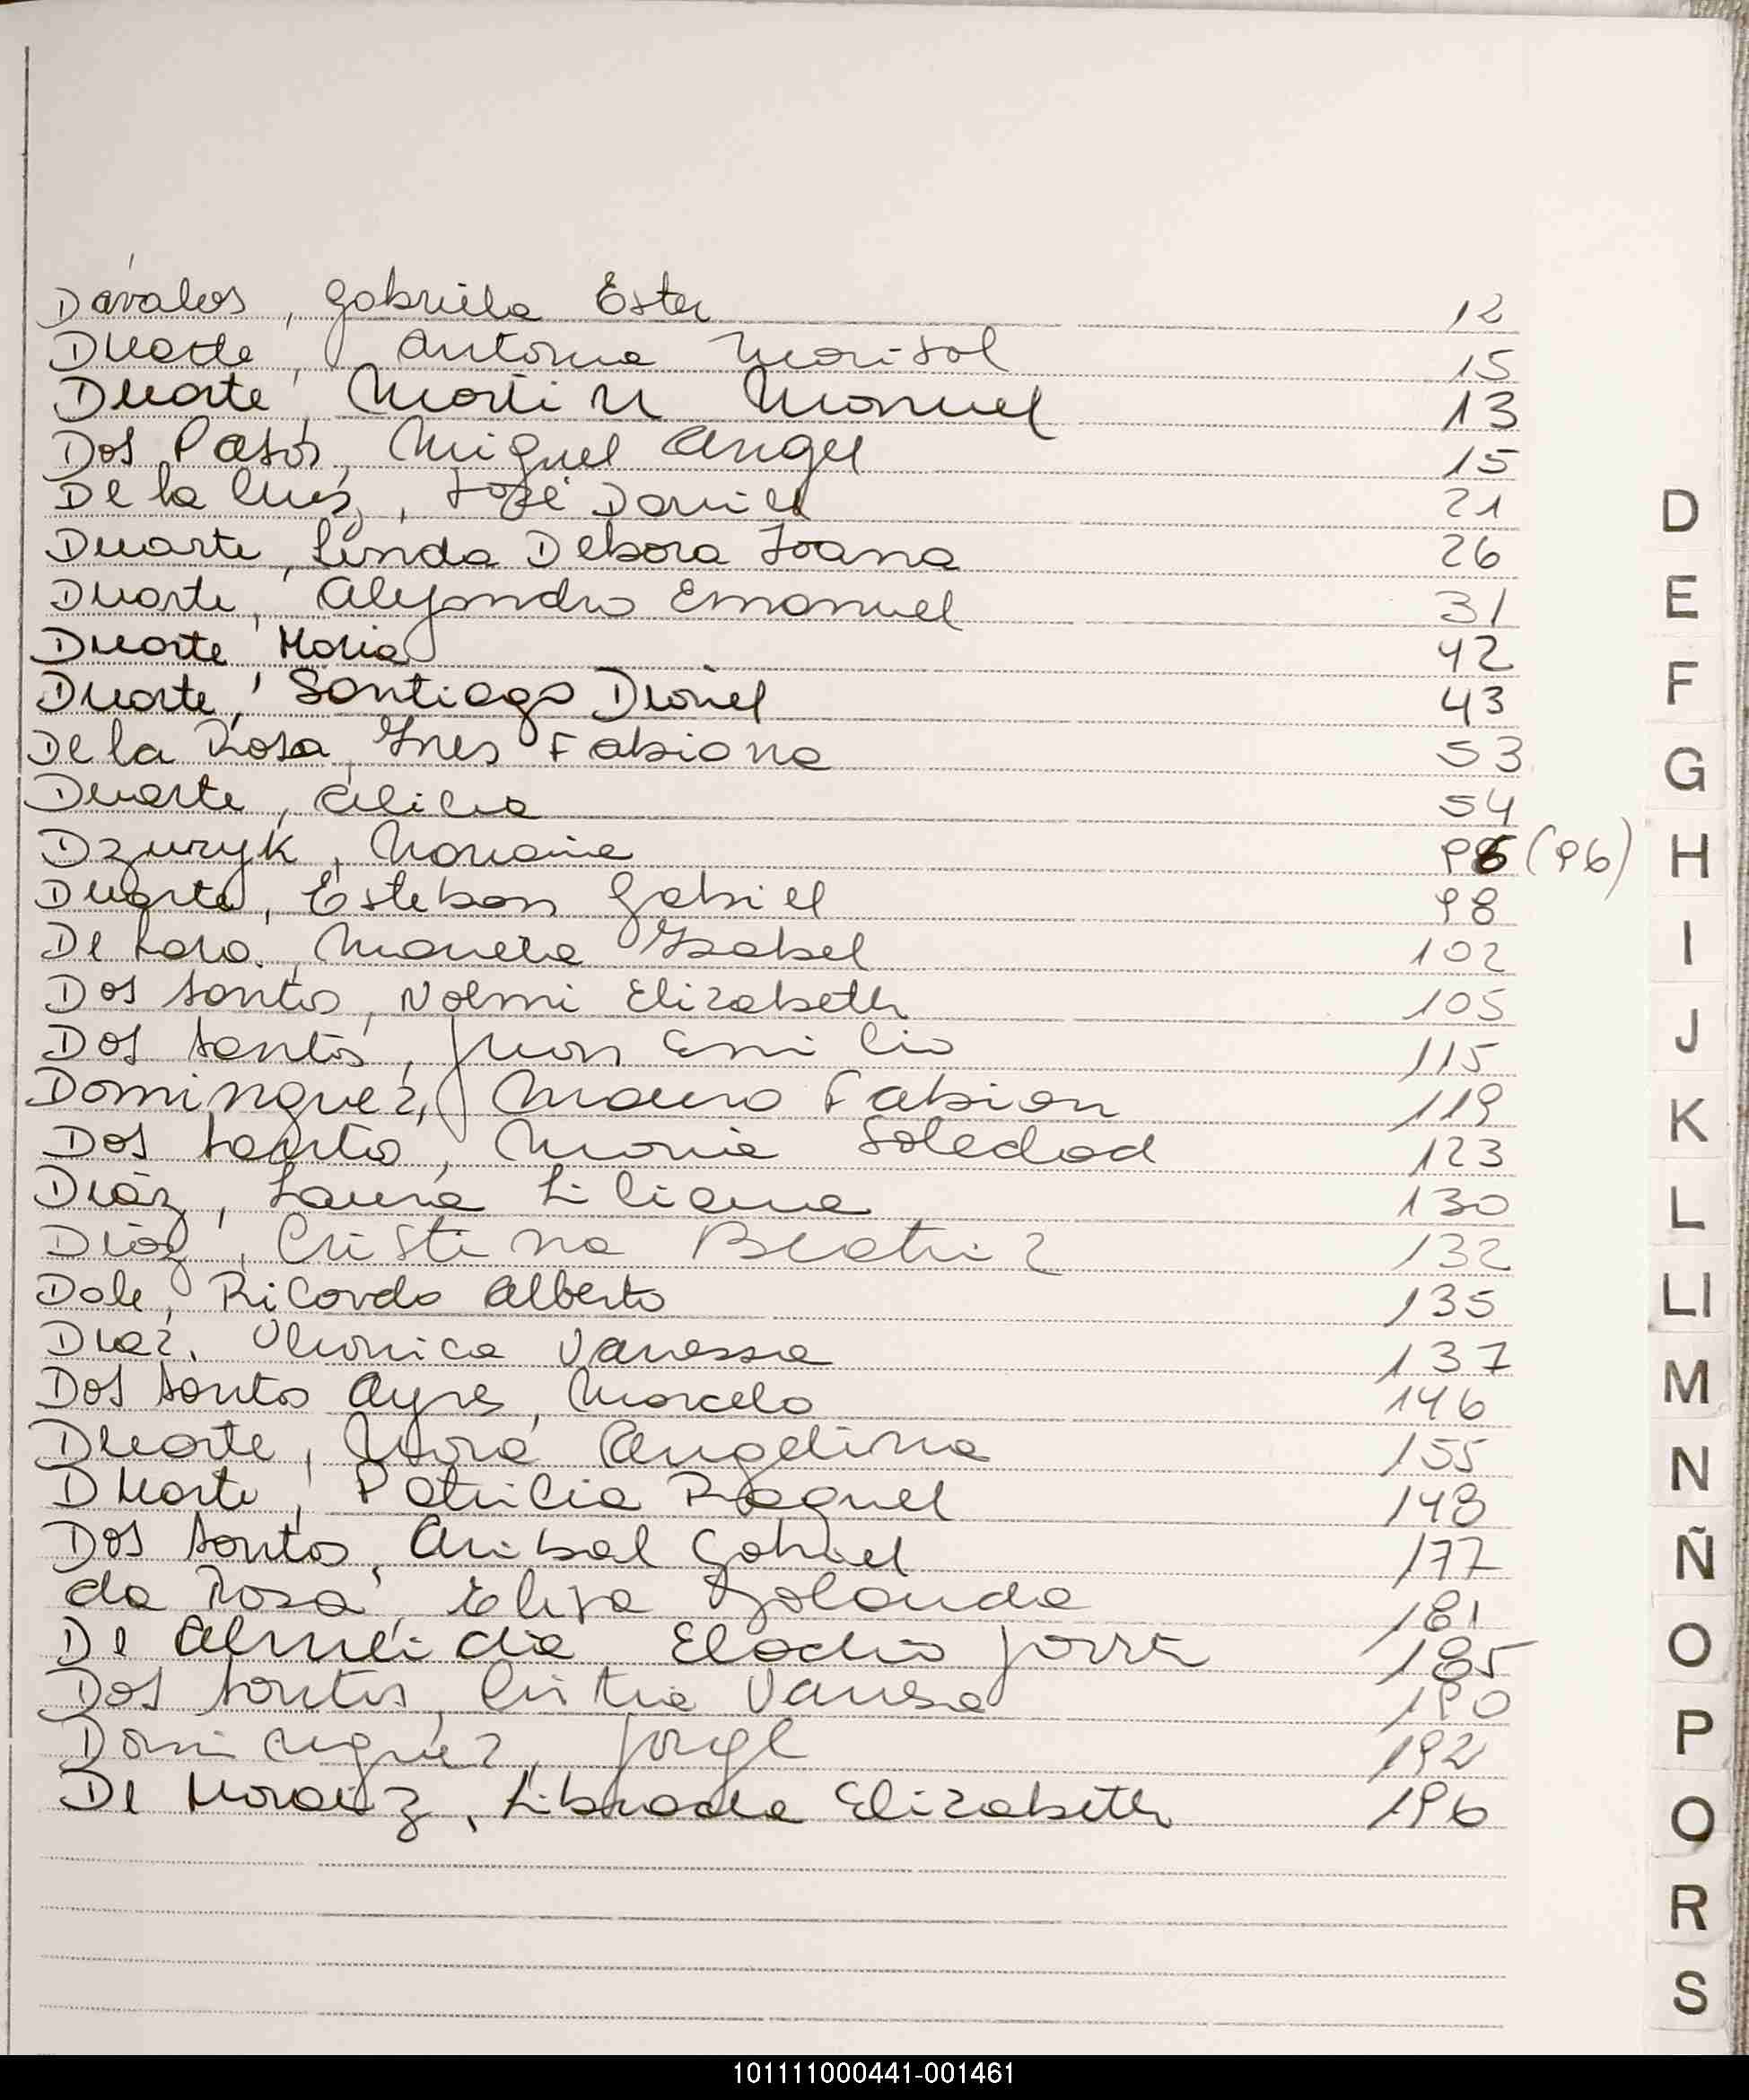 Dávalos, Gabriela Ester 12
Duarte, Antonia Marisol 15
Duarte, Martin Manuel 13
Dos Pasos, Miguel Angel 15
De la Cruz, José Daniel 21
Duarte, Linda Debora Joana 26
Duarte, Alejandro Emanuel 31
Duarte Maria 42
Duarte, Santiago Daniel 43
De la Rosa, Ynes Fabiana 53
Duarte, Alicia 54
Dzuryk, Mariana 96 (96)
Duarte, Esteban Gabriel 98
De Lara, Ysabel 102
Dos Santos, Noemi Elizabeth 105
Dos Santos, Juan Emilio 115
Dominguez, Mauro Fabian 119
Dos Santos, Maria Soledad 123
Diáz, Laura Liliana 130
Diáz, Cristina Beatriz 132
Dale, Ricardo Alberto 135
Diaz, Veronica Vanessa 137
Dos Santos Ayres, Marcelo 146
Duarte, Angelina 155
Duarte, Patricia Raquel 148
Dos Santos, Anibal Gabriel 177
da Rosa, Elisa Yolanda 181
De Almeida Eladio 185
Dos Santos, Vanesa 190
Dominguez, Jorge 192
De Moraiz, Librada Elizabeth 196
D
E
F
G
H
I
J
K
L
Ll
M
N
Ñ
O
P
Q
R
S
101111000441-001461